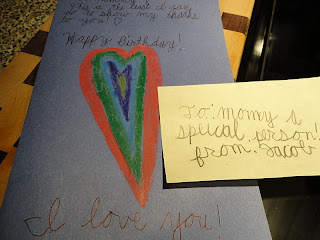 This is the least I can
do to show my thanks
to you!
Happy Birthday!
I love you!
To: momy a
special person!
from: Jacob